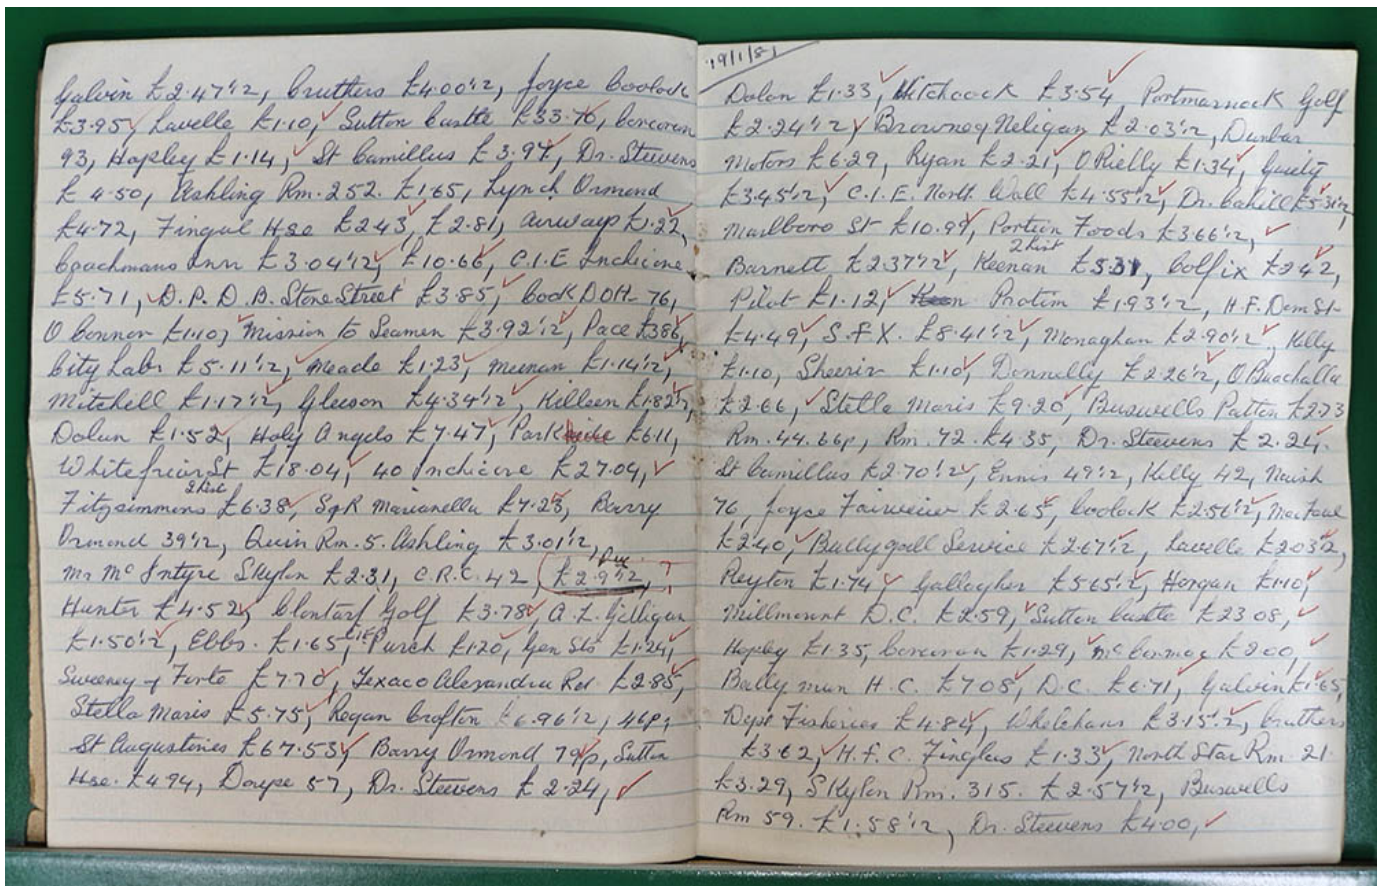 Galvin £2.47½, Cruthers £4.00½, Joyce Coolock
£3.95, Lavelle £1.10, Sutton Castle £33.76, Corcoran
93, Hopley £1.14, St Camillus £3.97, Dr. Steevens
£4.50, Ashling Rm. 252. £1.65, Lynch Ormond
£4.72, Fingal Hse £2.43, £2.81, Airways £1.22,
Coachmans Inn £3.04½, £10.66, C.I.E Inchicore
£5.71, D.P. D.B. Store Street £3.85, Cook DOH 76,
O Connor £1.10, Mission to Seamen £3.92½, Pace £3.86,
City Labs £5.11½, Meade £1.23, Meenan £1.14½,
Mitchell £1.17½, Gleeson £4.34½, Killeen £1.82½,
Dolan £1.52, Holy Angels £7.47, Park £6.11,
Whitefriar St £18.04, 40 Inchicore £27.04,
Fitzsimmons £6.38, SgR Marianella £7.23, Barry
Ormond 39½, Quin Rm. 5. Ashling £3.01½,
Mr Mc Intyre Skylon £2.31, C.R.C. 42 £2.9½,
Hunter £4.52, Clontarf Golf £3.78, A. L. Gilligan
£1.50½, Ebbs. £1.65, Purch £1.20, Gen Sts £1.24,
Sweeney & Forte £7.70, Texaco Alexandra Rd. £2.85,
Stella Maris £5.75, Regan Crofton £6.96½, 46p,
St Augustines £67.53, Barry Ormond 79p, Sutton
Hse. £4.94, Doupe 57, Dr. Steevens £2.24,
19/1/81
Dolan £1.33, Hitchcock £3.54, Portmarnock Golf
£2.24½, Browneg Neligan £2.03½, Dunbar
Motors £6.29, Ryan £2.21, O Rielly £1.34, Quity
£3.45½, C.I.E. North Wall £4.55½, Dr. Cahill £5.31½,
Marlboro St £10.99, Portion Foods £3.66½,
Barnett £2.37½, Keenan £5.31, Colfix £2.42,
Pilot £1.12, Protim £1.93½, H.F. Dom St
£4.49, S.F.X. £8.41½, Monaghan £2.90½, Kelly
£1.10, Sheerin £1.10, Donnelly £2.26½, O Buachalla
£2.66, Stella Maris £9.20, Buswells Patton £2.23
Rm. 44. 66p, Rm. 72. £4.35, Dr. Steevens £2.24.
St Camillus £2.70½, Ennis 49½, Kelly 42, Naish
76, Joyce Fairview £2.65, Coolock £2.56½, Mac Faul
£2.40, Ballygall Service £2.67½, Lavelle £2.03½,
Peyton £1.74, Gallagher £5.65½, Horgan £1.10,
Millmount D.C. £2.59, Sutton Castle £23.08,
Hopley £1.35, Corcoran £1.29, Mc Cormac £2.00,
Bally mun H.C. £7.05, D.C. £6.71, Galvin £1.65,
Dept Fisheries £4.84, Whelehans £3.15½, Cruthers
£3.62, H.F.C. Finglas £1.33, North Star Rm. 21
£3.29, Skylon Rm. 315. £2.57½, Buswells
Rm 59. £1.58½, Dr. Steevens £4.00,